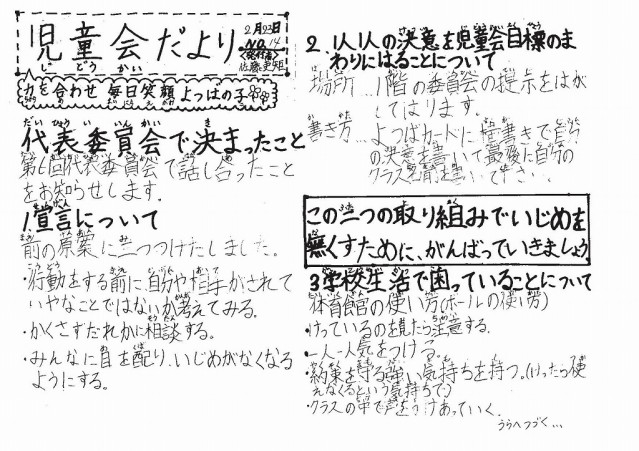 児童会だより
じどうかい
2月23日
No.14
〈発行者〉
力を合わせ 毎日笑顔 よつばの子
代表委員会で決まったこと
だいひょういいんかい
第6回代表委員会で話し合ったこと
をお知らせします。
1.宣言について
前の原案に三つつけたしました。
・行動をする前に自分や相手がされて
いやなことではないか考えてみる。
・かくさずだれかに相談する。
・みんなに目を配り、いじめがなくなる
ようにする。
2.1人1人の決意を児童会目標のま
わりにはることについて
場所…1階の委員会の掲示をはが
してはります。
書き方…よつばカードに横書きで自分
の決意を書いて最後に自分の
クラス名前を書いて下さい…
この三つの取り組みでいじめを
無くすために、がんばっていきましょう
3学校生活で困っていることについて
体育館の使い方(ボールの使い方)
・けっているのを見たら注意する。
・一人一人気をつける。
・約束を守る強い気持ちを持つ。(けったら使
えなくなるという気持ちで)
・クラスの中で声をかけあっていく。
うらへつづく…